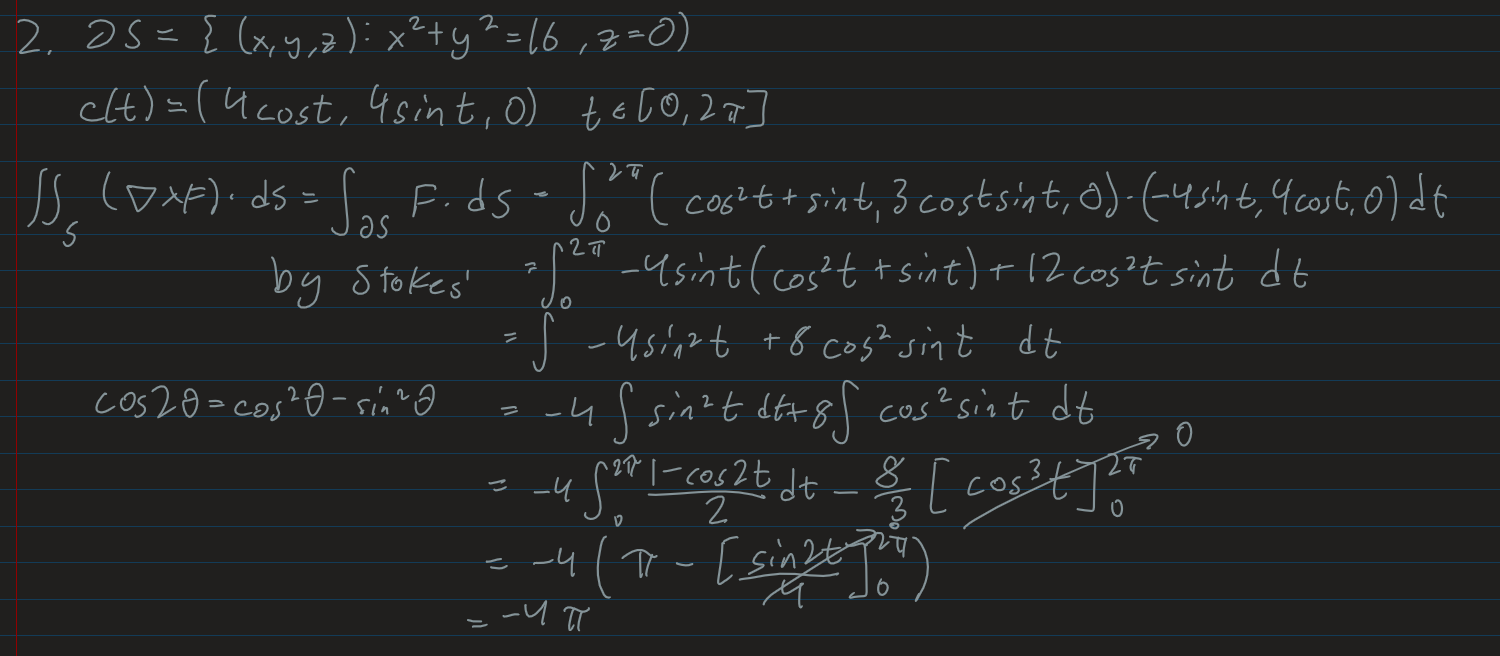 2. ∂S = { (x,y,z): x²+y²=16 , z=0)
c(t) = (4cost, 4sint, 0) t ∈ [0, 2π]
∬_S (∇×F)· ds = ∫_∂S F· ds = ∫_0^2π ( cos²t + sint, 3 costsint, 0)·(-4sint, 4cost, 0) dt
by Stokes' = ∫_0^2π -4sint(cos²t + sint) + 12cos²t sint dt
= ∫ -4sin²t + 8 cos² sint dt
cos2θ = cos²θ - sin²θ = -4 ∫ sin²t dt + 8∫ cos² sint dt
= -4 ∫_0^2π (1-cos2t)/2 dt - 8/3 [cos³t]_0^2π → 0
= -4 (π - [sin2t/4]_0^2π) → 0
= -4π